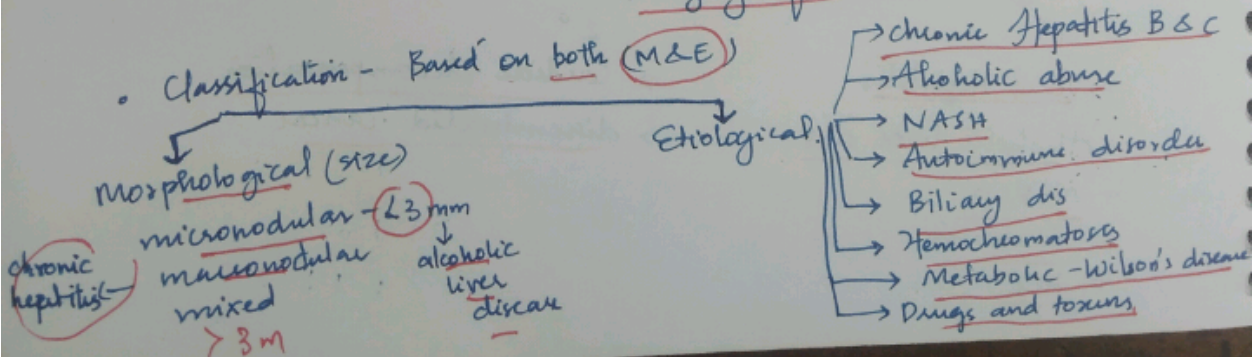 • Classification - Based on both (M&E)
Morphological (size)
micronodular - <3 mm
macronodular
mixed
> 3 m
chronic
hepatitis
alcoholic
liver
disease
Etiological
Chronic Hepatitis B & C
Alcoholic abuse
NASH
Autoimmune disorder
Biliary dis
Hemochromatoses
Metabolic - Wilson's disease
Drugs and toxins